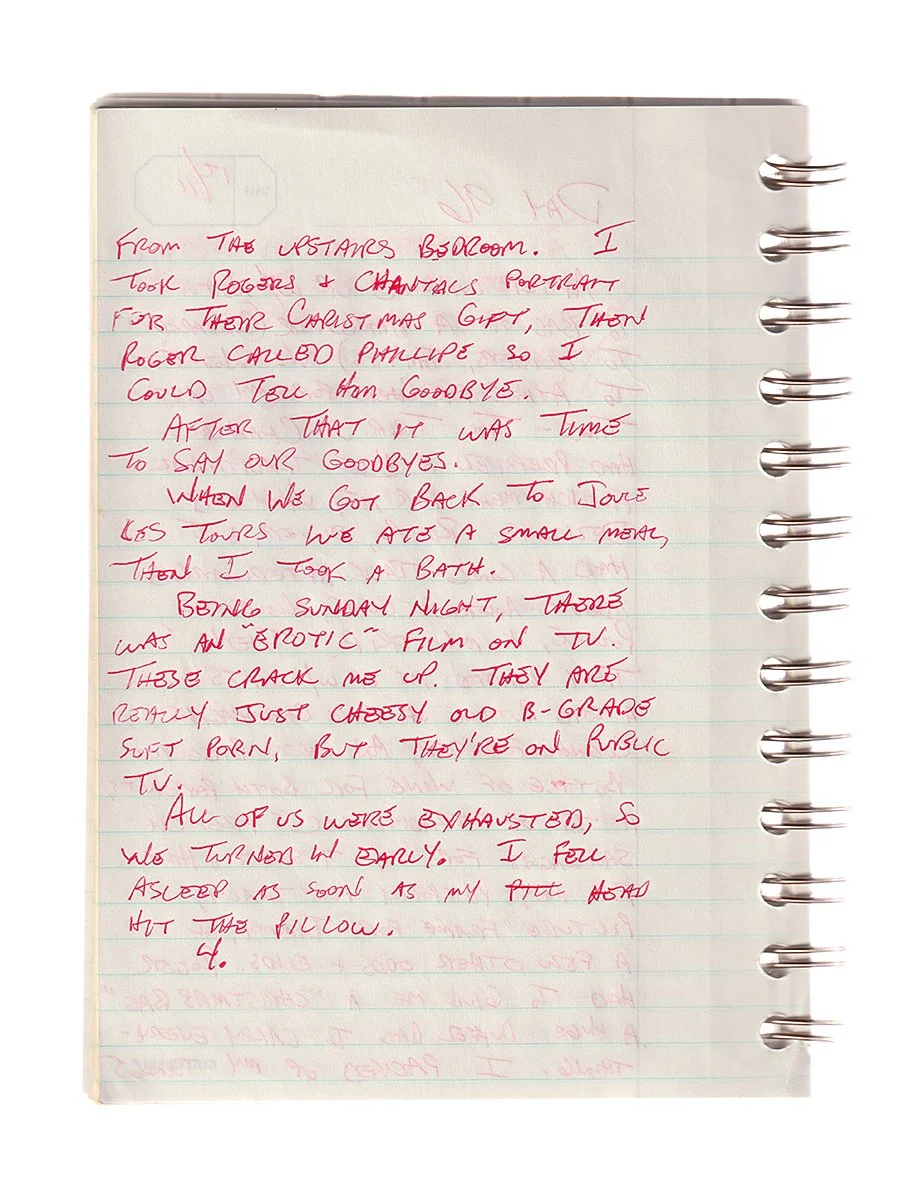 FROM THE UPSTAIRS BEDROOM. I
TOOK ROGERS & CHANTALS PORTRAIT
FOR THEIR CHRISTMAS GIFT, THEN
ROGER CALLED PHILLIPE SO I
COULD TELL HIM GOODBYE.
AFTER THAT IT WAS TIME
TO SAY OUR GOODBYES.
WHEN WE GOT BACK TO JOUE
LES TOURS WE ATE A SMALL MEAL,
THEN I TOOK A BATH.
BEING SUNDAY NIGHT, THERE
WAS AN "EROTIC" FILM ON TV.
THESE CRACK ME UP. THEY ARE
REALLY JUST CHEESY OLD B-GRADE
SOFT PORN, BUT THEY'RE ON PUBLIC
TV.
ALL OF US WERE EXHAUSTED, SO
WE TURNED IN EARLY. I FELL
ASLEEP AS SOON AS MY PILL HEAD
HIT THE PILLOW.
4.